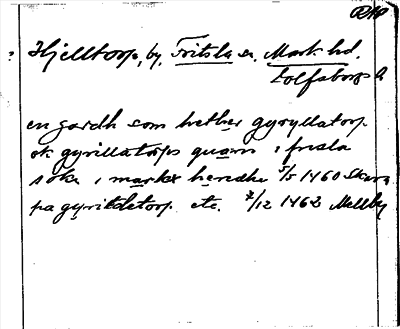 RAP
Hjelltorp, by, Fritsla sn. Mark hd.
Älfsborgs l.
en gardh som hether gyryllatorp
ok gyrillatorps quærn i frisla
sokn i markx hæredhe 5/5 1460 Skara
pa gyritdetorp etc. 2/12 1462 Mellby